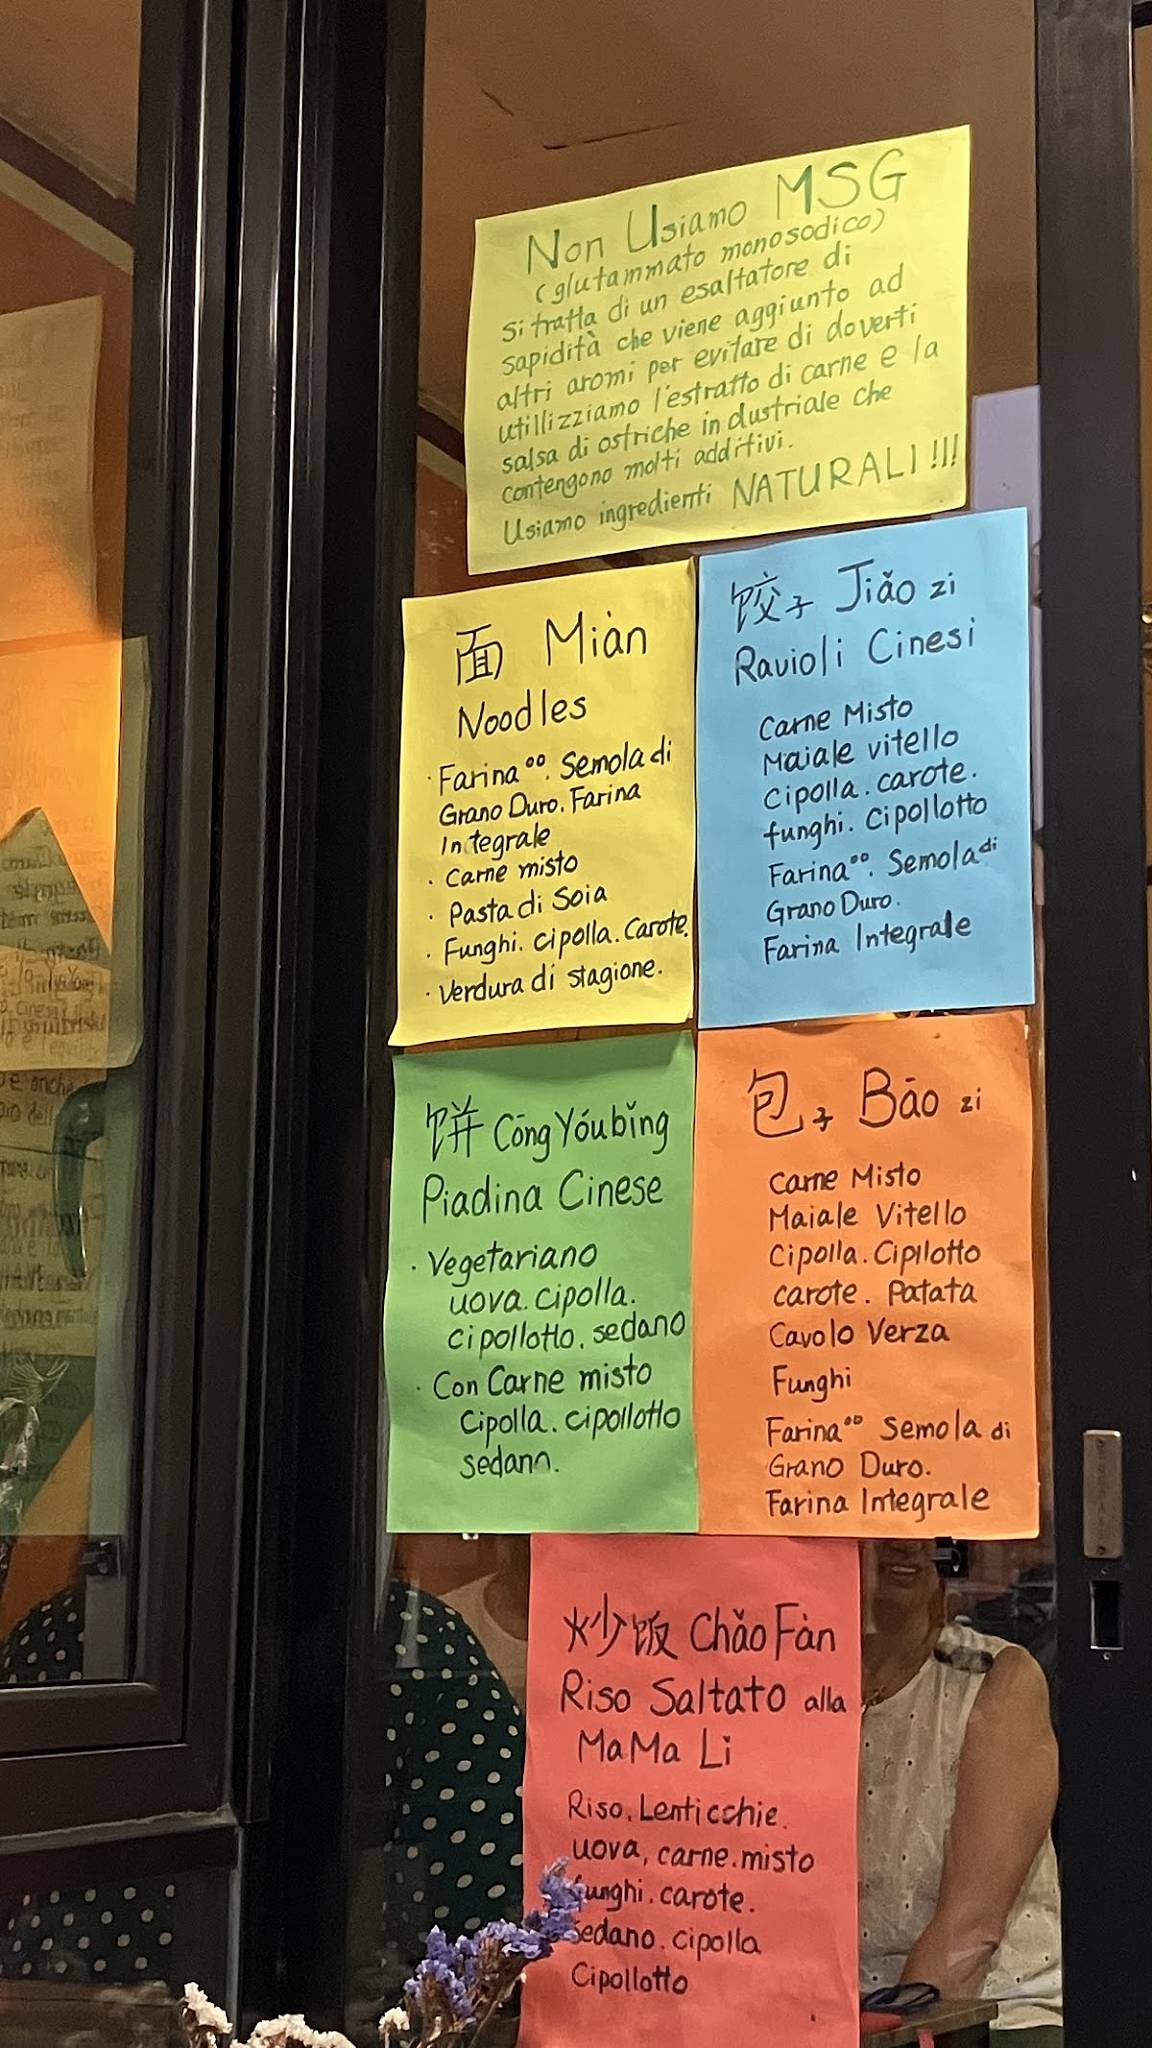 Non Usiamo MSG
(glutammato monosodico)
Si tratta di un esaltatore di
sapidità che viene aggiunto ad
altri aromi per evitare di doverti
utillizziamo l'estratto di carne e la
salsa di ostriche industriale che
contengono molti additivi.
Usiamo ingredienti NATURALI!!!
面 Miàn
Noodles
· Farina °°. Semola di
Grano Duro. Farina
Integrale
· Carne misto
· Pasta di Soia
· Funghi. Cipolla. Carote.
· Verdura di stagione.
饺子 Jiǎo zi
Ravioli Cinesi
Carne Misto
Maiale vitello
Cipolla. carote.
funghi. Cipollotto
Farina °°. Semola di
Grano Duro.
Farina Integrale
饼 Cōng Yóubǐng
Piadina Cinese
· Vegetariano
uova. cipolla.
cipollotto. sedano
· Con Carne misto
Cipolla. cipollotto
sedano.
包子 Bāo zi
Carne Misto
Maiale Vitello
Cipolla. Cipllotto
carote. Patata
Cavolo Verza
Funghi
Farina °° Semola di
Grano Duro.
Farina Integrale
炒饭 Chǎo Fàn
Riso Saltato alla
MaMa Li
Riso. Lenticchie.
uova, carne. misto
funghi. carote.
Sedano. cipolla
Cipollotto